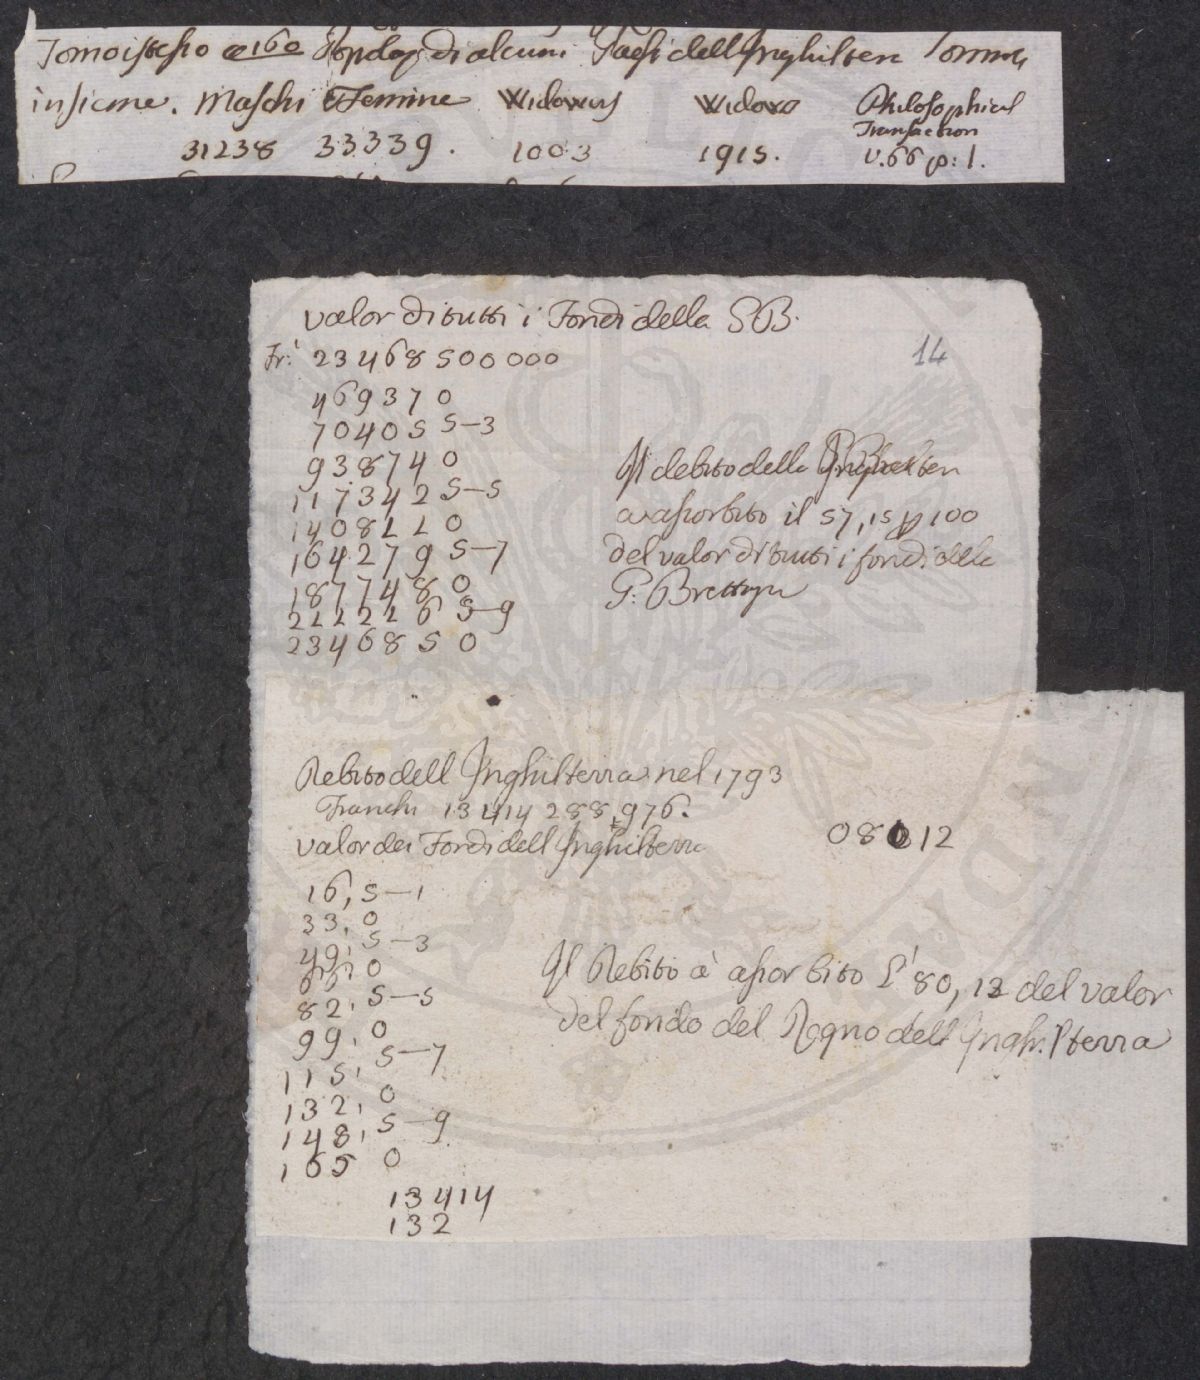 Tomo istesso a 160 Popolaz di alcuni Paesi dell Inghilterr
insieme. Maschi Femine Widowers Widows Philosophical
Transaction
31238 33339. 1003 1915. V.66 p: 1.
valor di tutti i Fondi della GB.
14
Fr: 23468500000
469370
704055-3
938740
1173425-5
1408220
1642795-7
1877480
2222265-9
2346850
Il debito della
a assorbito il 57,15 p 100
del valor di tutti i fondi della
G: Brettagn
Debito dell Inghilterra nel 1793
Franchi 13414288,976.
valor dei Fondi dell Inghilterra
08012
16,5-1
33,0
49,5-3
66,0
82,5-5
99,0
115,5-7
132,0
148,5-9
165 0
Il Debito à assorbito l'80,12 del valor
del fondo del Regno dell Inghilterra
13414
132